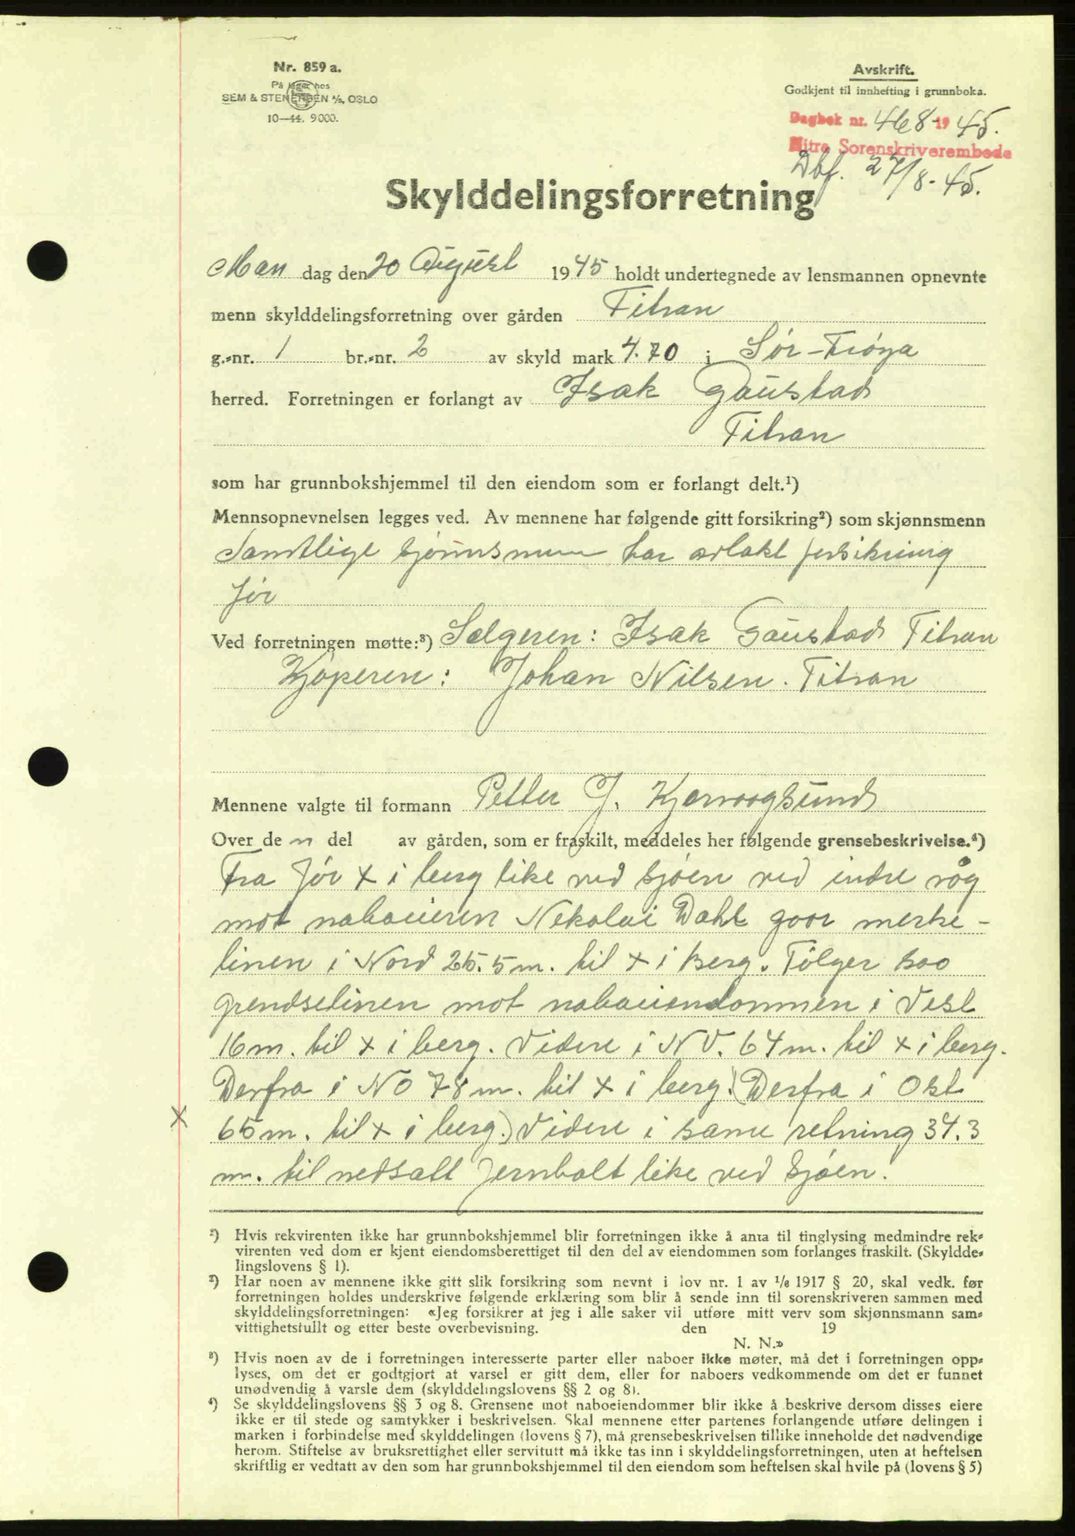 Nr. 859 a.
På lager hos
SEM & STENERSEN A/S, OSLO
10—44. 9000.
Avskrift.
Godkjent til innhefting i grunnboka.
Dagbok nr. 468 19 45.
Hitra Sorenskriverembede
Dbf. 27/8-45.
Skylddelingsforretning
Man dag den 20 August 1945 holdt undertegnede av lensmannen opnevnte
menn skylddelingsforretning over gården Titran
g.-nr. 1 br.-nr. 2 av skyld mark 4.70 i Sør-Frøya
herred. Forretningen er forlangt av Isak Gaustad
Titran
som har grunnbokshjemmel til den eiendom som er forlangt delt.¹)
Mennsopnevnelsen legges ved. Av mennene har følgende gitt forsikring²) som skjønnsmenn
Samtlige har avlakt forsikring
før
Ved forretningen møtte:³) Selgeren: Isak Gaustad Titran
Kjøperen: Johan Nilsen. Titran
Mennene valgte til formann Petter J.
Over de n del av gården, som er fraskilt, meddeles her følgende grensebeskrivelse.⁴)
Fra før x i berg like ved sjøen ved indre våg
mot naboeieren Nekolai Dahl goor merke-
linen i Nord 25.5 m. til x i berg. Følger soo
grendselinen mot naboeiendommen i Vest
16 m. til x i berg. Videre i NV. 64 m. til x i berg.
Derfra i NO 78 m. til x i berg. (Derfra i Ost
x 65 m. til x i berg.) Videre i same retning 34.3
m. til nedsatt Jernbolt like ved sjøen.
¹) Hvis rekvirenten ikke har grunnbokshjemmel blir forretningen ikke å anta til tinglysing medmindre rek-
virenten ved dom er kjent eiendomsberettiget til den del av eiendommen som forlanges fraskilt. (Skyldde-
lingslovens § 1).
²) Har noen av mennene ikke gitt slik forsikring som nevnt i lov nr. 1 av 1/6 1917 § 20, skal vedk. før
forretningen holdes underskrive følgende erklæring som blir å sende inn til sorenskriveren sammen med
skylddelingsforretningen: «Jeg forsikrer at jeg i alle saker vil utføre mitt verv som skjønnsmann sam-
vittighetsfullt og etter beste overbevisning. den 19
N. N.»
³) Hvis noen av de i forretningen interesserte parter eller naboer ikke møter, må det i forretningen opp-
lyses, om det er godtgjort at varsel er gitt dem, eller for naboers vedkommende om det er funnet
unødvendig å varsle dem (skylddelingslovens §§ 2 og 8).
⁴) Se skylddelingslovens §§ 3 og 8. Grensene mot naboeiendommer blir ikke å beskrive dersom disses eiere
ikke er til stede og samtykker i beskrivelsen. Skal mennene etter partenes forlangende utføre delingen i
marken i forbindelse med skylddelingen (lovens § 7), må grensebeskrivelsen tillike inneholde det nødvendige
herom. Stiftelse av bruksrettighet eller servitutt må ikke tas inn i skylddelingsforretningen, uten at heftelsen
skriftlig er vedtatt av den som har grunnbokshjemmel til den eiendom som heftelsen skal hvile på (lovens § 5)